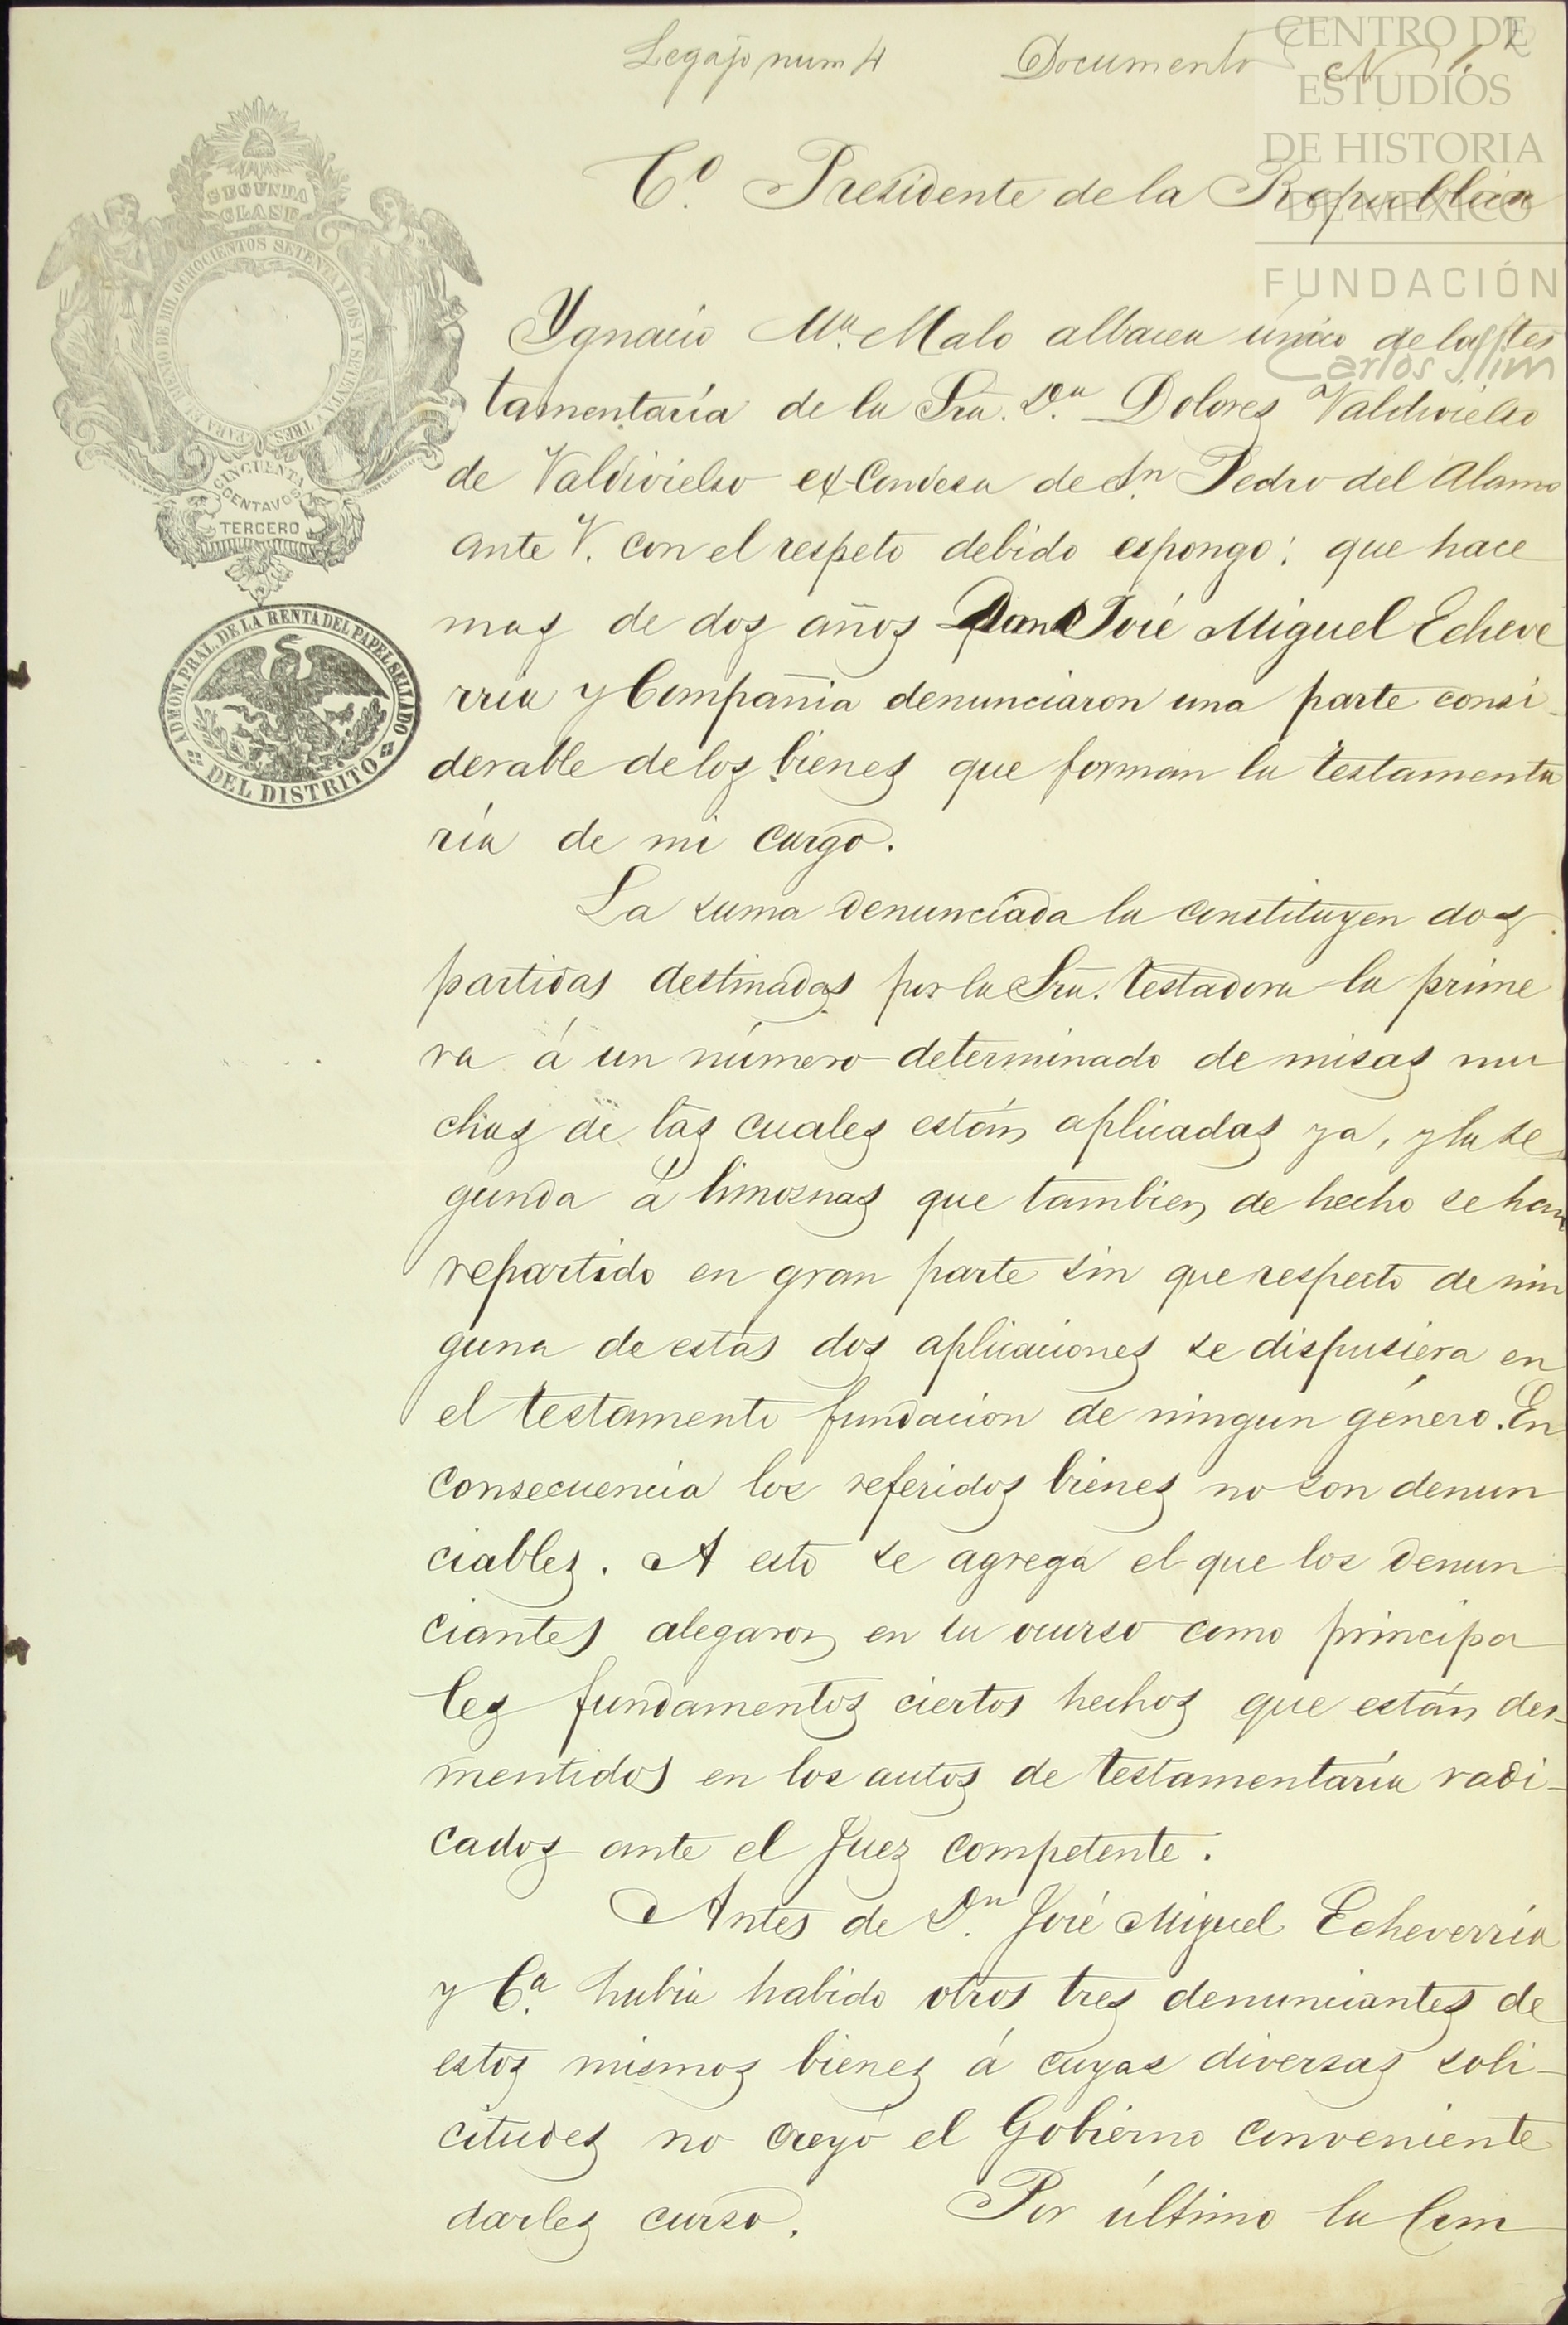 Legajo num 4 Documento N 1
CENTRO DE
ESTUDIOS
DE HISTORIA
DE MÉXICO
FUNDACIÓN
Carlos Slim
SEGUNDA
CLASE
PARA EL BIENIO DE MIL OCHOCIENTOS SETENTA Y DOS Y SETENTA Y TRES
CINCUENTA
CENTAVOS
TERCERO
ADMON. PRAL. DE LA RENTA DEL PAPEL SELLADO
DEL DISTRITO
C.º Presidente de la Republica
Ygnacio M.ª Malo albacea único de la tes
tamentaría de la Sra. D.ª Dolores Valdivielso
de Valdivielso ex-Condesa de S.n Pedro del Alamo
ante V. con el respeto debido espongo: que hace
mas de dos años Don José Miguel Echeve
rría y Compañia denunciaron una parte consi-
derable de los bienes que forman la testamenta
ría de mi cargo.
La suma denunciada la constituyen dos
partidas destinadas por la Sra. testadora la prime
ra á un número determinado de misas mu
chas de las cuales están aplicadas ya, y la se
gunda á limosnas que tambien de hecho se han
repartido en gran parte sin que respecto de nin
guna de estas dos aplicaciones se dispusiera en
el testamento fundacion de ningun género. En
consecuencia los referidos bienes no son denun
ciables. A esto se agrega el que los denun
ciantes alegaron en su ocurso como principa
les fundamentos ciertos hechos que están des-
mentidos en los autos de testamentaría radi-
cados ante el Juez competente.
Antes de D.n José Miguel Echeverría
y C.ª habia habido otros tres denunciantes de
estos mismos bienes á cuyas diversas soli-
citudes no creyó el Gobierno conveniente
darles curso. Por último la Com